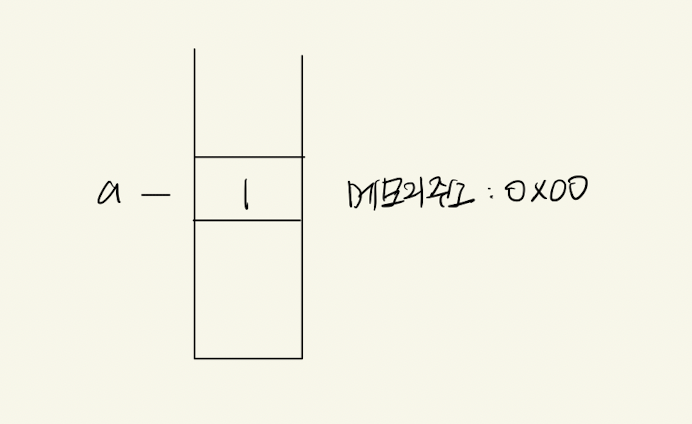 a - 1 메모리주소 : 0x00